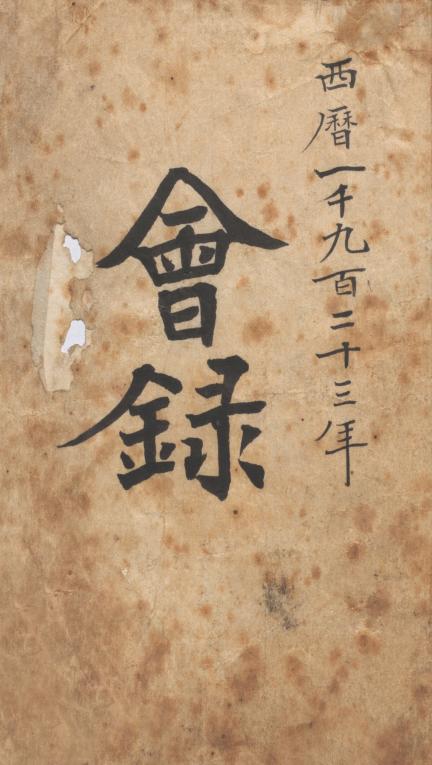 西曆一千九百二十三年
會録